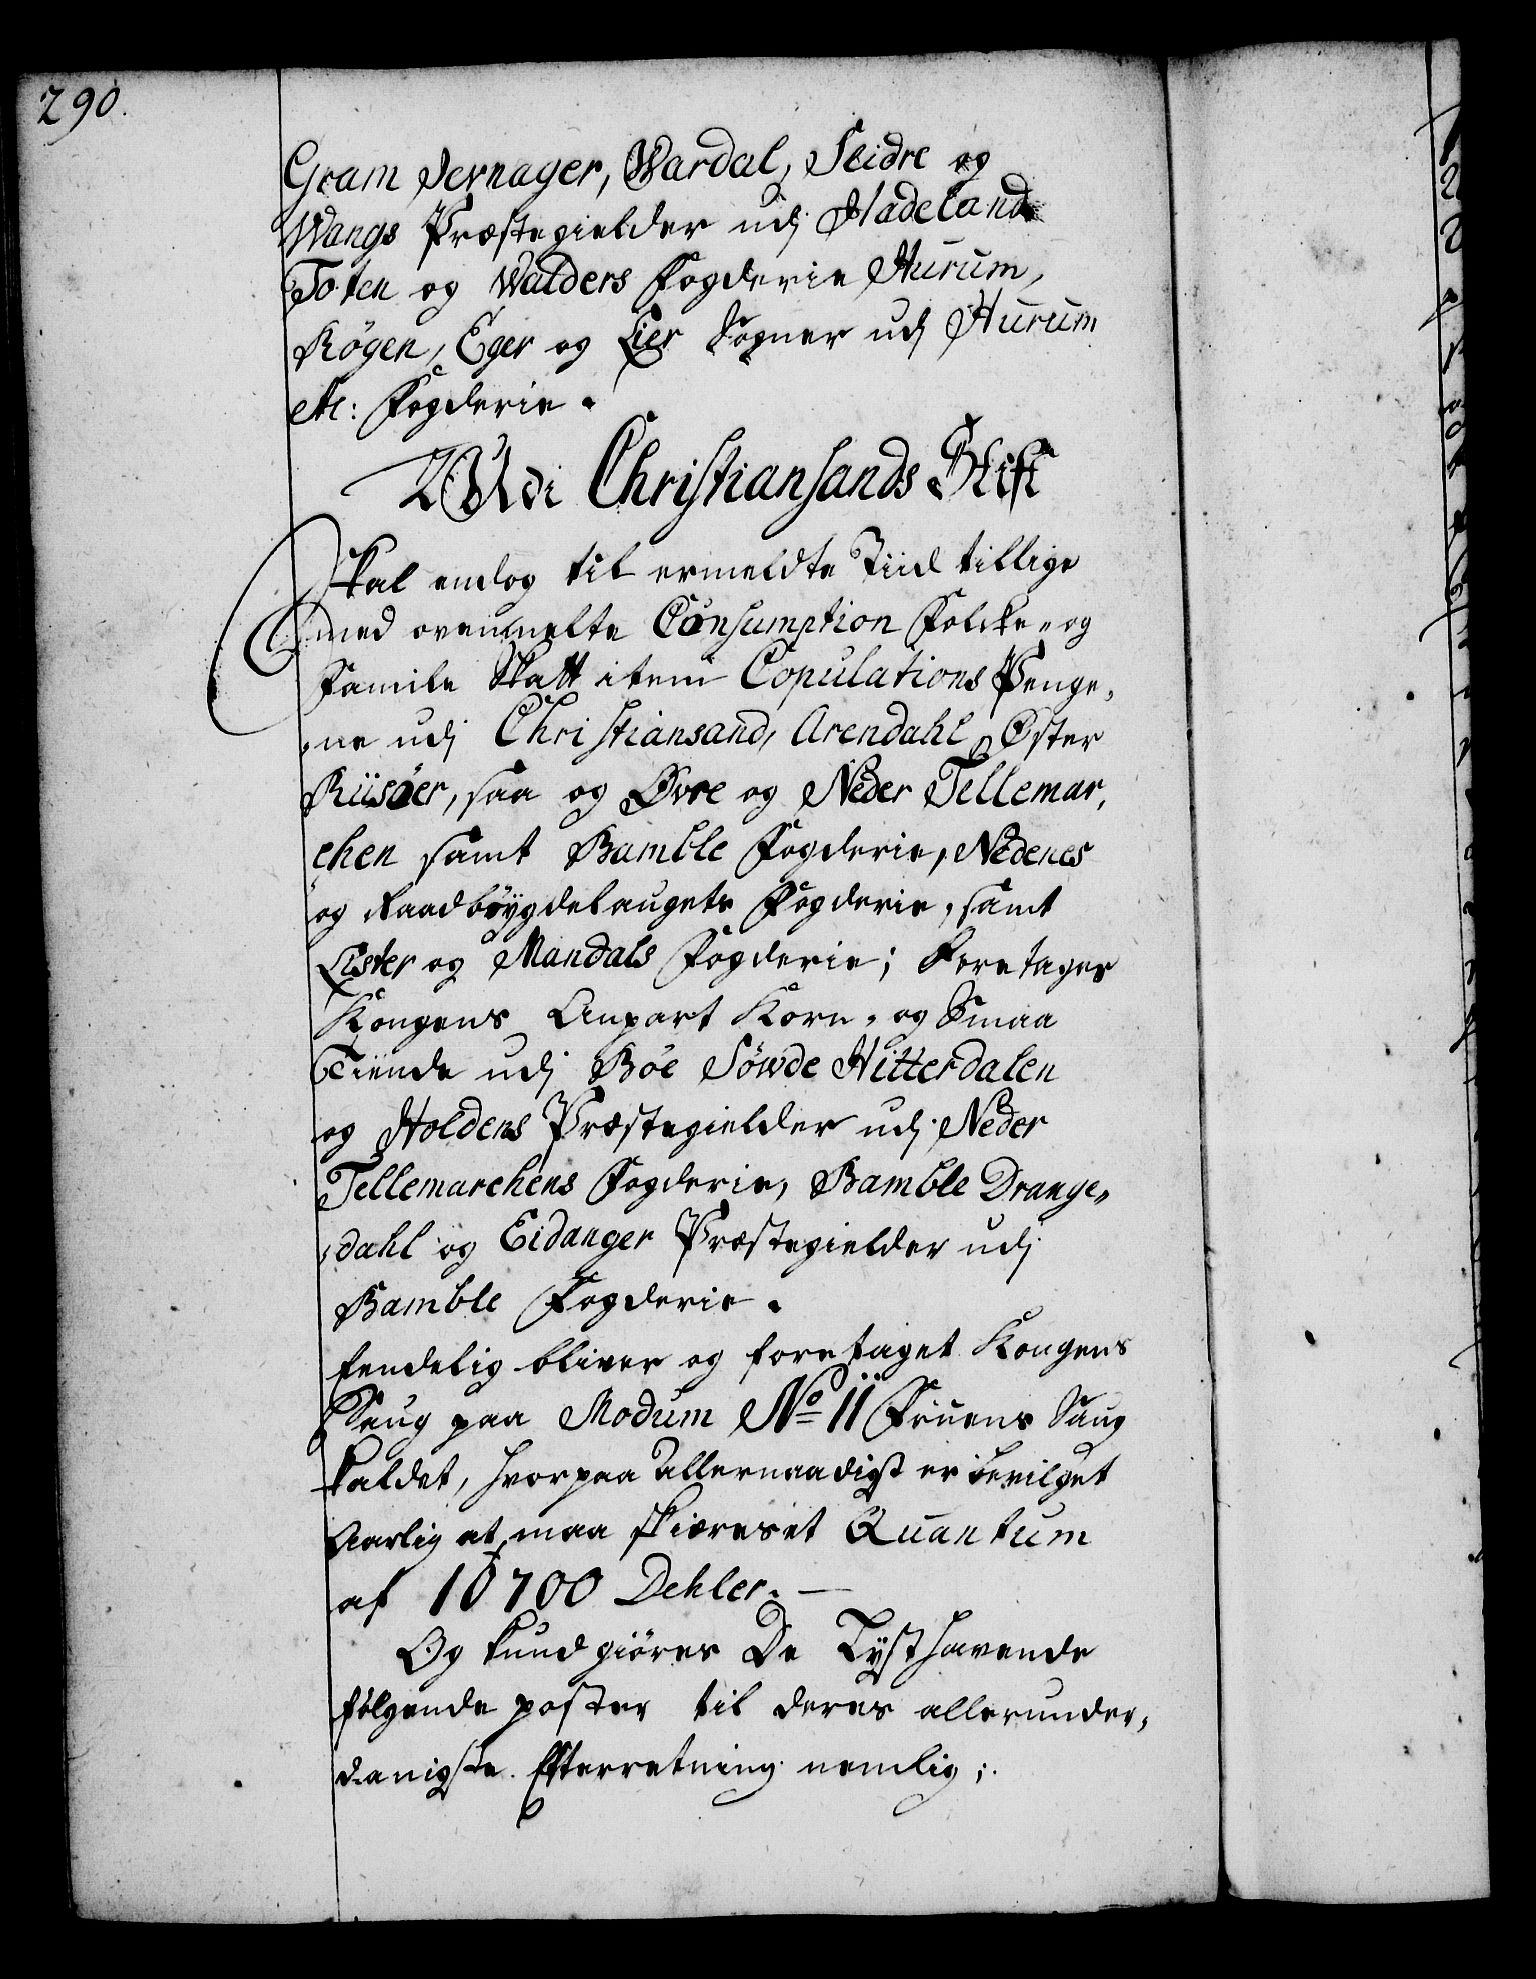 290.
Gram Jernager, Wardal, Slidre og
Wangs Præstegielder udj Hadeland
Toten og Walders Fogderie Hurum,
Rögen, Eger og Lier Sogner udj Hurum
etc: Fogderie.
Udi Christiansands Stift
Skal endog til ermeldte Tiid tillige
med ovenmelte Consumption Folcke- og
Familie Skatt item Copulations Penge-
-ne udj Christiansand, Arendahl, Øster
Riisöer, saa og Øvre og Neder Tellemar-
chen samt Bamble Fogderie, Nedenes
og Raadböygdelaugets Fogderie, samt
Lister og Mandals Fogderie; Foretages
Kongens Anpart Korn- og Smaa
Tiende udj Böe Söwde Hitterdalen
og Holdens Præstegielder udj Neder
Tellemarchens Fogderie, Bamble Drange-
-dahl og Eidanger Præstegielder udj
Bamble Fogderie.
Endelig bliver og foretaget Kongens
Saug paa Modum No 11 Fruens Saug
kaldet, hvorpaa allernaadigst er bevilget
Aarlig at maa skiæres et Quantum
af 10700 Dehler.
Og kundgiöres De Lysthavende
fölgende poster til deres allerunder-
danigste Efterretning nemlig;